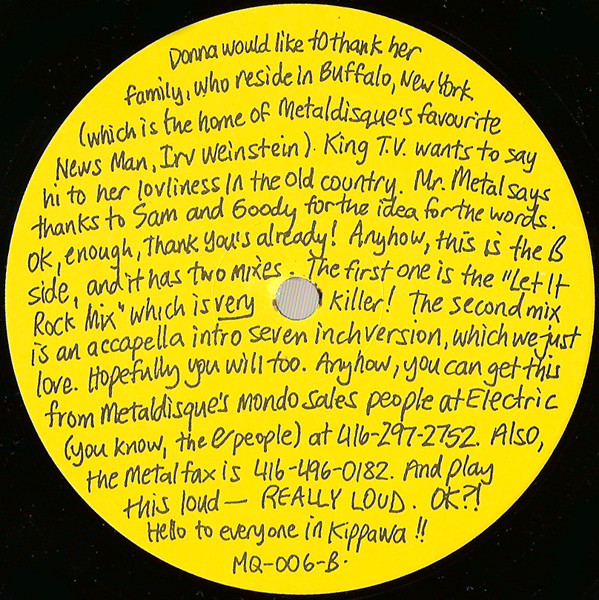 Donna would like to thank her
family, who reside in Buffalo, New York
(which is the home of Metaldisque's favourite
News Man, Irv Weinstein). King T.V. wants to say
hi to her lovliness in the old country. Mr. Metal says
thanks to Sam and Goody for the idea for the words.
OK, enough, thank you's already! Anyhow, this is the B
side, and it has two mixes. The first one is the "Let It
Rock Mix" which is very killer! The second mix
is an accapella intro seven inch version, which we just
love. Hopefully you will too. Anyhow, you can get this
from Metaldisque's mondo sales people at Electric
(you know, the e people) at 416-297-2752. Also,
the Metalfax is 416-496-0182. And play
this loud — REALLY LOUD. OK?!
Hello to everyone in Kippawa!!
MQ-006-B.